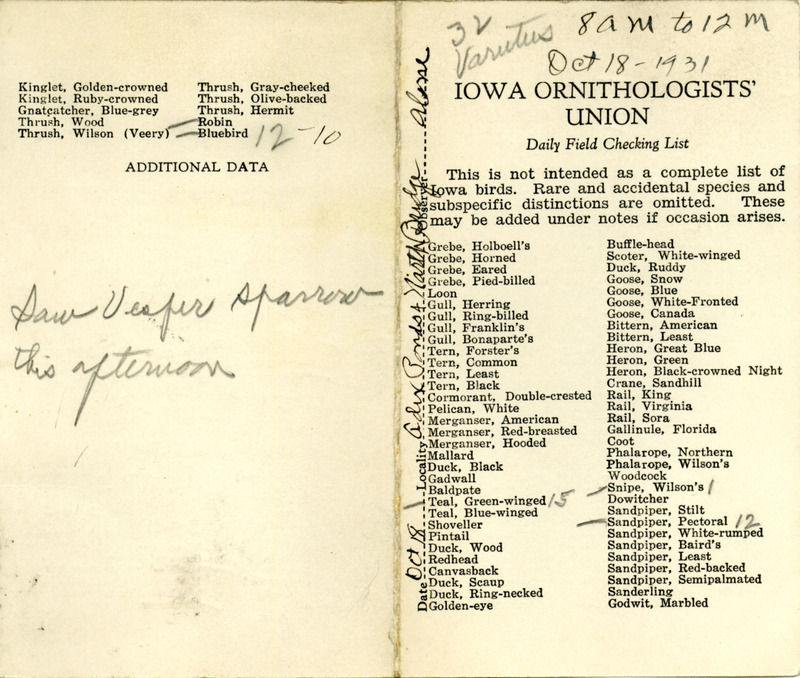 Kinglet, Golden-crowned
Kinglet, Ruby-crowned
Gnatcatcher, Blue-grey
Thrush, Wood
Thrush, Wilson (Veery)
Thrush, Gray-cheeked
Thrush, Olive-backed
Thrush, Hermit
Robin
Bluebird 12-10
ADDITIONAL DATA
Saw Vesper Sparrow
this afternoon
32 Varieties
8 a m to 12 m
Oct 18-1931
IOWA ORNITHOLOGISTS'
UNION
Daily Field Checking List
This is not intended as a complete list of
Iowa birds. Rare and accidental species and
subspecific distinctions are omitted. These
may be added under notes if occasion arises.
Date Oct 18 Locality Forest North Observer Alone
Grebe, Holboell's
Grebe, Horned
Grebe, Eared
Grebe, Pied-billed
Loon
Gull, Herring
Gull, Ring-billed
Gull, Franklin's
Gull, Bonaparte's
Tern, Forster's
Tern, Common
Tern, Least
Tern, Black
Cormorant, Double-crested
Pelican, White
Merganser, American
Merganser, Red-breasted
Merganser, Hooded
Mallard
Duck, Black
Gadwall
Baldpate
Teal, Green-winged 15
Teal, Blue-winged
Shoveller
Pintail
Duck, Wood
Redhead
Canvasback
Duck, Scaup
Duck, Ring-necked
Golden-eye
Buffle-head
Scoter, White-winged
Duck, Ruddy
Goose, Snow
Goose, Blue
Goose, White-Fronted
Goose, Canada
Bittern, American
Bittern, Least
Heron, Great Blue
Heron, Green
Heron, Black-crowned Night
Crane, Sandhill
Rail, King
Rail, Virginia
Rail, Sora
Gallinule, Florida
Coot
Phalarope, Northern
Phalarope, Wilson's
Woodcock
Snipe, Wilson's 1
Dowitcher
Sandpiper, Stilt
Sandpiper, Pectoral 12
Sandpiper, White-rumped
Sandpiper, Baird's
Sandpiper, Least
Sandpiper, Red-backed
Sandpiper, Semipalmated
Sanderling
Godwit, Marbled